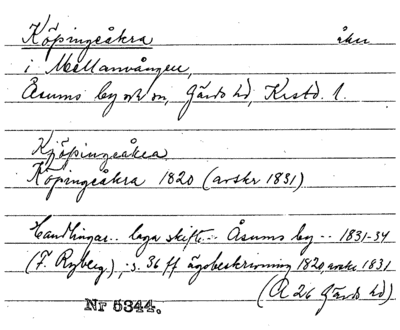 Köpingeåkra åker
i Mellanvången,
Åsums by o sn, Gärds hd, Krstd. l.
Kjöpingeåkra
Köpingeåkra 1820 (avskr 1831)
Handlingar.. laga skifte... Åsums by.. 1831-34
(F. Ryberg), s. 36 ff ägobeskrivning 1820 avskr 1831
(A 26 Gärds hd)
Nr 5344.